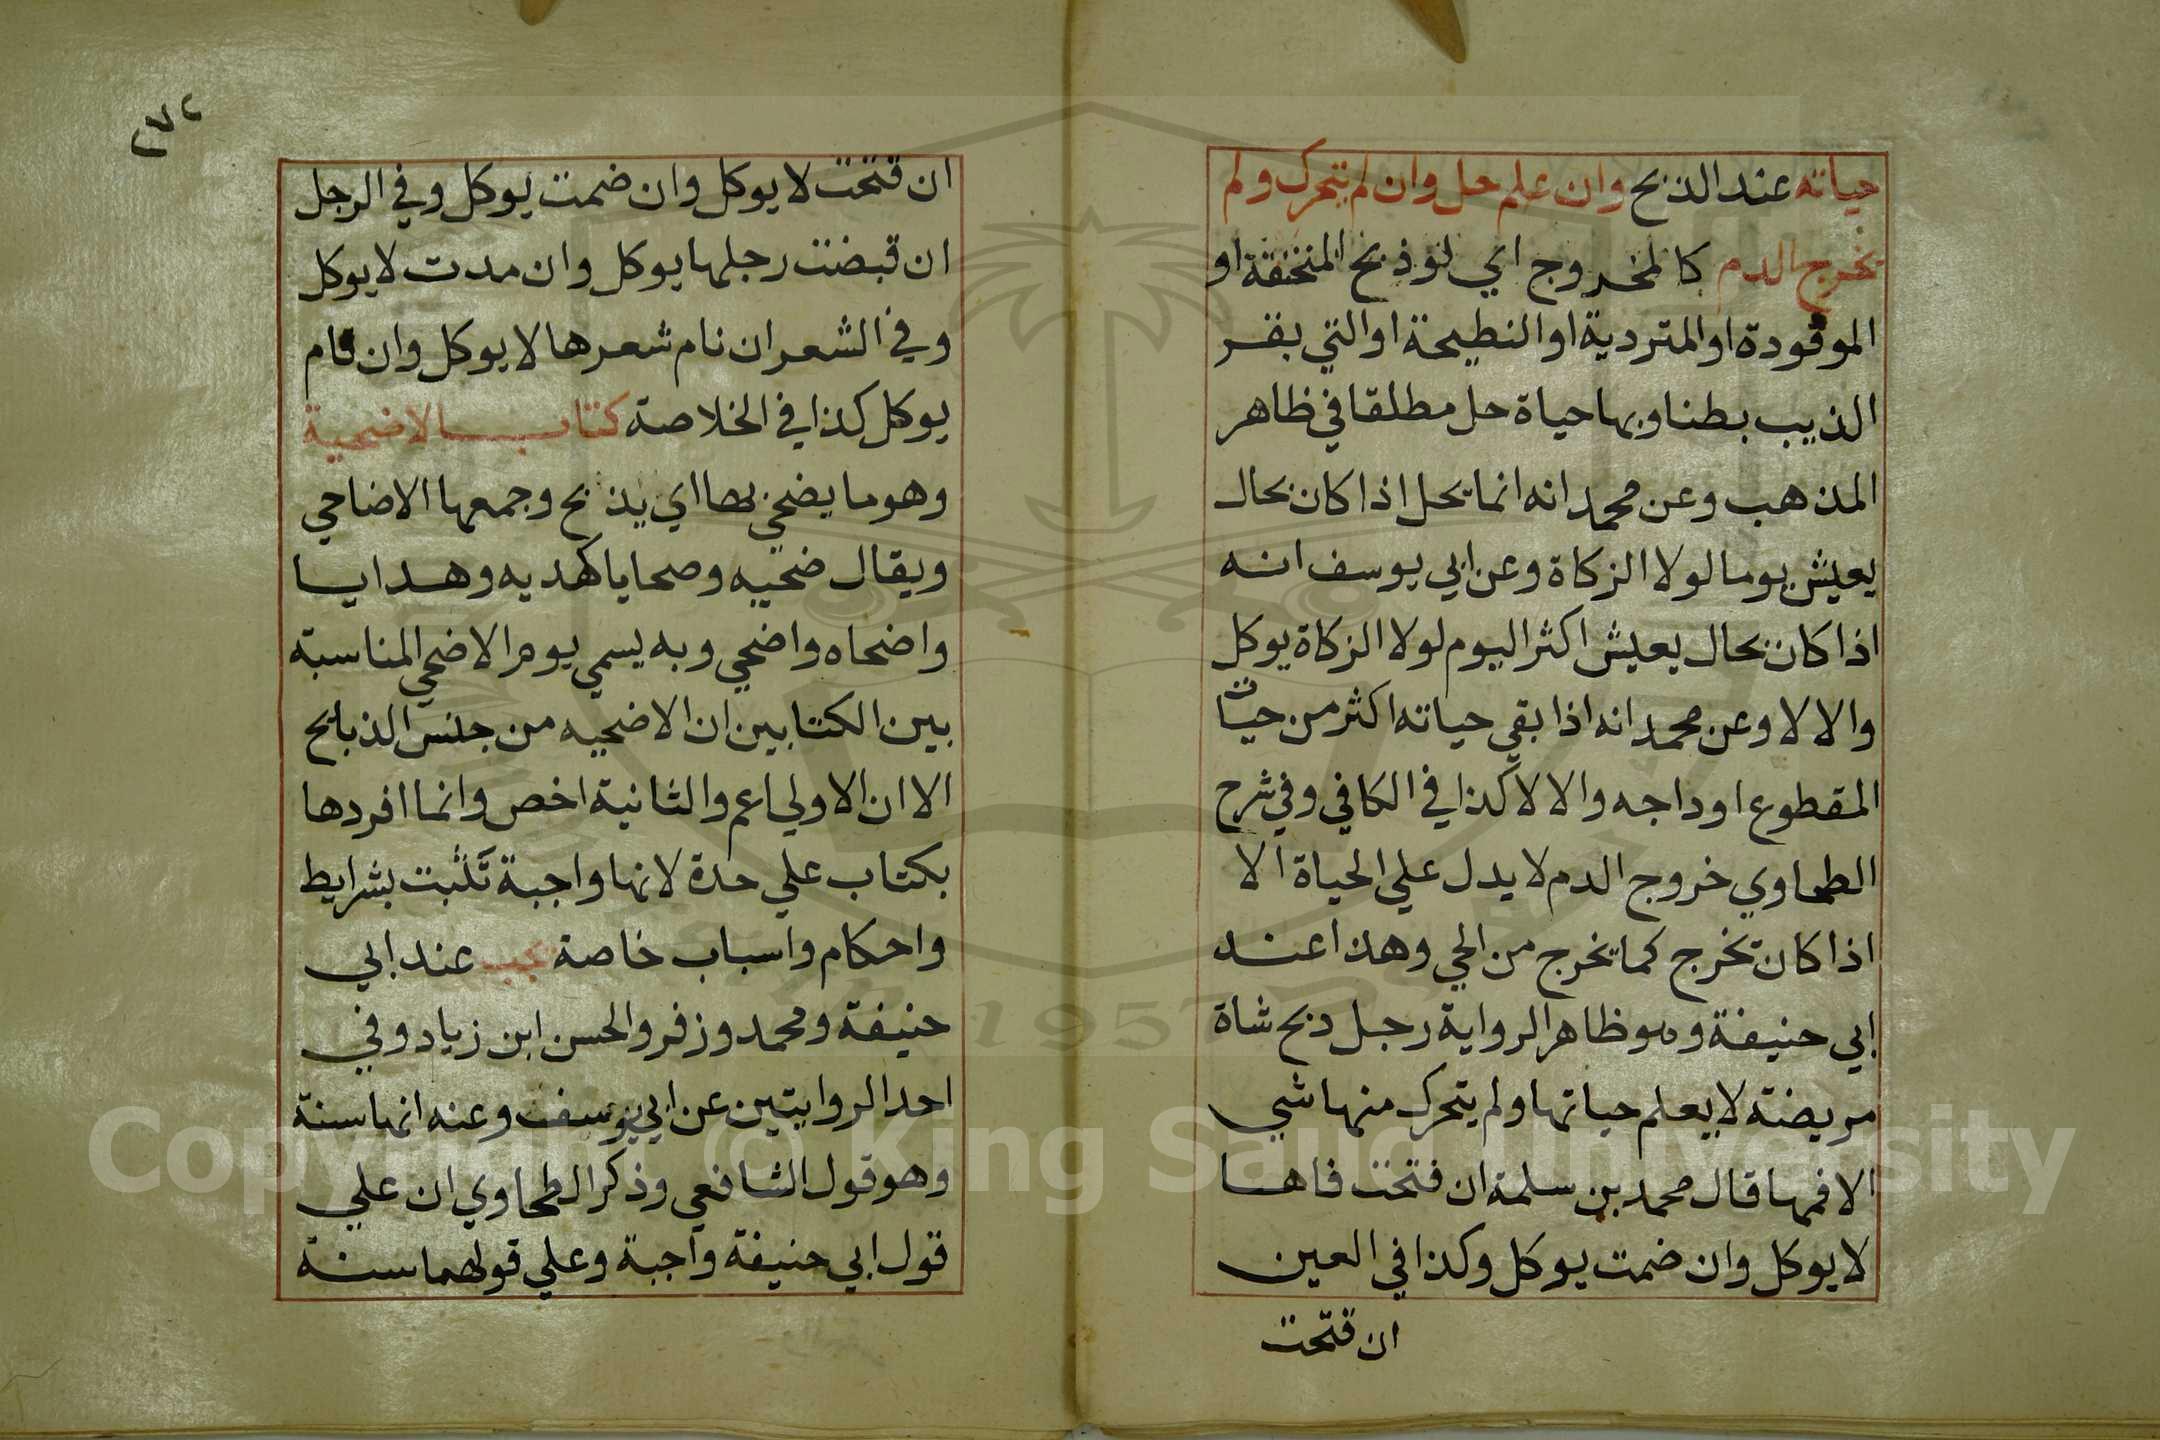 حياته عند الذبح وان علم حل وان لم يتحرك ولم
يخرج الدم كالمخروج اي لو ذبح المنخنقة او
الموقودة او المتردية او النطيحة او التي بقر
الذيب بطنا وبها حياة حل مطلقا في ظاهر
المذهب وعن محمد انه انما يحل اذا كان بحال
يعيش يوما لولا الزكاة وعن ابي يوسف انه
اذا كان بحال يعيش اكثر اليوم لولا الزكاة يوكل
والا لا وعن محمد انه اذا بقي حياته اكثر من حيات
المقطوع اوداجه والا لا كذا في الكافي وفي شرح
الطحاوي خروج الدم لا يدل علي الحياة الا
اذا كان تخرج كما يخرج من الحي وهذا عند
ابي حنيفة وهو ظاهر الرواية رجل دبح شاة
مريضة لا يعلم حياتها ولم يتحرك منها شي
الا فمها قال محمد بن سلمة ان فتحت فاها
لا يوكل وان ضمت يوكل وكذا في العين
ان فتحت
٢٧٢
ان فتحت لا يوكل وان ضمت يوكل وفي الرجل
ان قبضت رجلها يوكل وان مدت لا يوكل
وفي الشعر ان نام شعرها لا يوكل وان قام
يوكل كذا في الخلاصة كتاب الاضحية
وهو ما يضحي بها اي يذبح وجمعها الاضاحي
ويقال ضحيه وصحايا كهديه وهدايا
واضحاه واضحي وبه يسمي يوم الاضحي المناسبة
بين الكتابين ان الاضحيه من جنس الذبايح
الا ان الاولي اعم والثانية اخص وانما افردها
بكتاب علي حدة لانها واجبة تثبت بشرايط
واحكام واسباب خاصة تجب عند ابي
حنيفة ومحمد وزفر والحسن ابن زياد وفي
احد الروايتين عن ابي يوسف وعنه انها سنة
وهو قول الشافعي وذكر الطحاوي ان علي
قول ابي حنيفة واجبة وعلي قولهما سنة
1957
Copyright © King Saud University